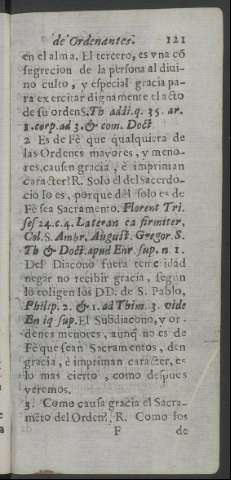 de Ordenantes. 121
en el alma. El tercero, es vna cõ
segrecion de la persona al diui-
no culto, y especial gracia pa-
ra exercitar dignamente el acto
de su ordenS.Th addi.q. 35. ar.
1.corp.ad 3.& com. Doct
2 Es de Fè que qualquiera de
las Ordenes mayores, y meno-
res,causen gracia, è impriman
caracter? R. Solo el del sacerdo-
cio lo es, porque dèl solo es de
Fè sea Sacramento. Florent Tri.
ses 24.c.4. Lateran ca firmiter,
Col.S. Ambr. August. Gregor S.
Th & Doct.apud Enr. sup. n. 1.
Del Diacono fuera temeridad
negar no recibir gracia, segun
lo coligen los DD. de S. Pablo,
Philip. 2. & 1. ad Thim. 3. vide
Enriq sup. El Subdiacono, y or-
denes menores, aunq̃ no es de
Fè que sean Sacramentos, den
gracia, è impriman caracter, es
lo mas cierto, como despues
veremos.
3. Como causa gracia el Sacra-
mẽto del Orden?, R. Como los
F de